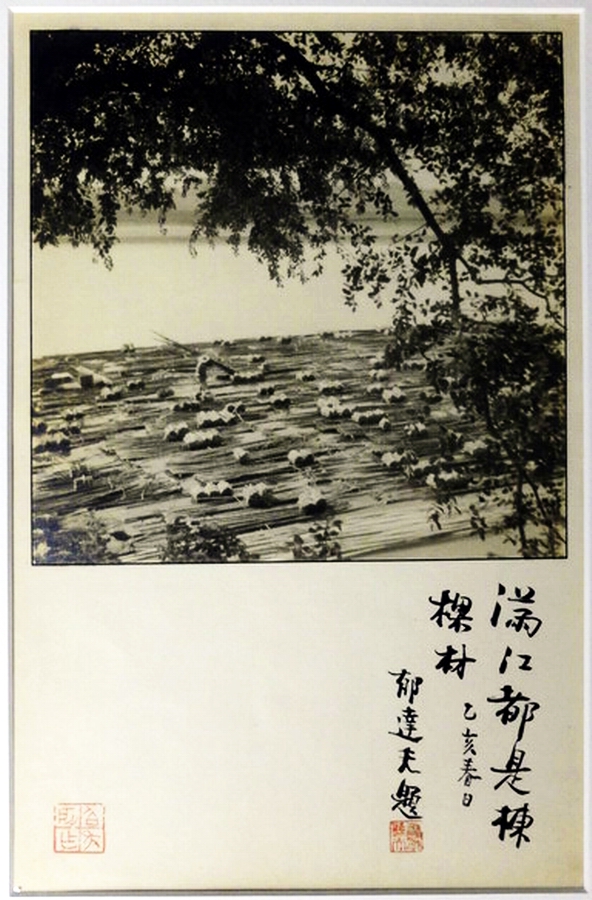 滿江都是棟
樑材
乙亥春日
郁達夫題